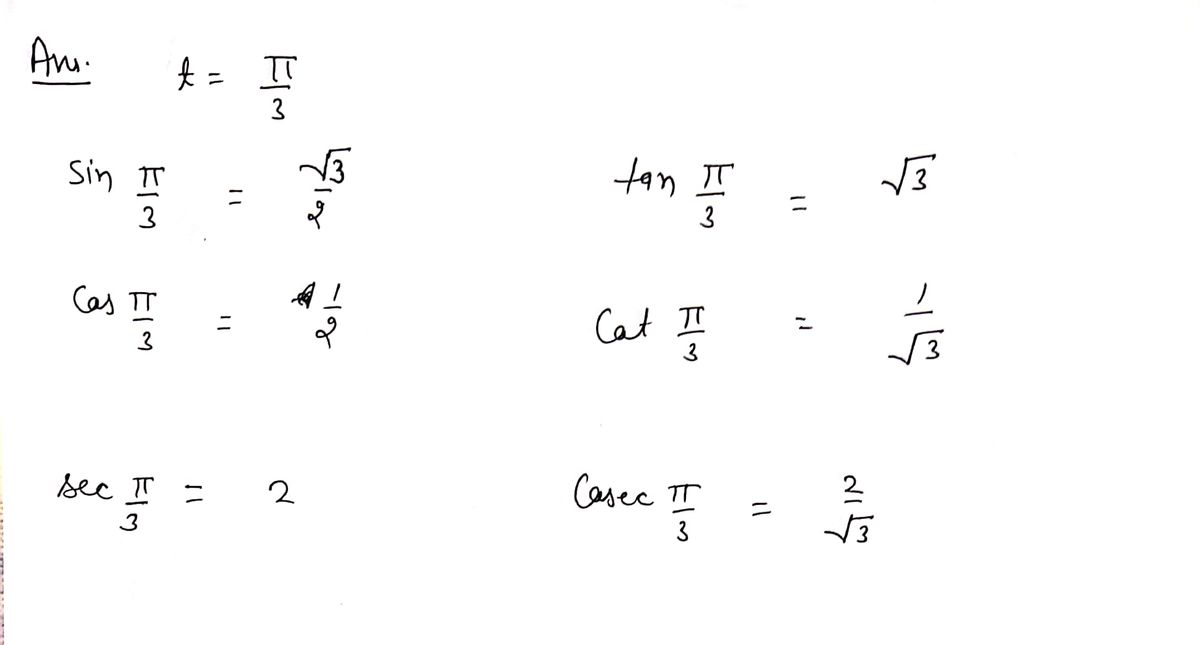 Ans. t = π/3
sin π/3 = √3/2 tan π/3 = √3
Cos π/3 = 1/2 Cot π/3 = 1/√3
sec π/3 = 2 Cosec π/3 = 2/√3